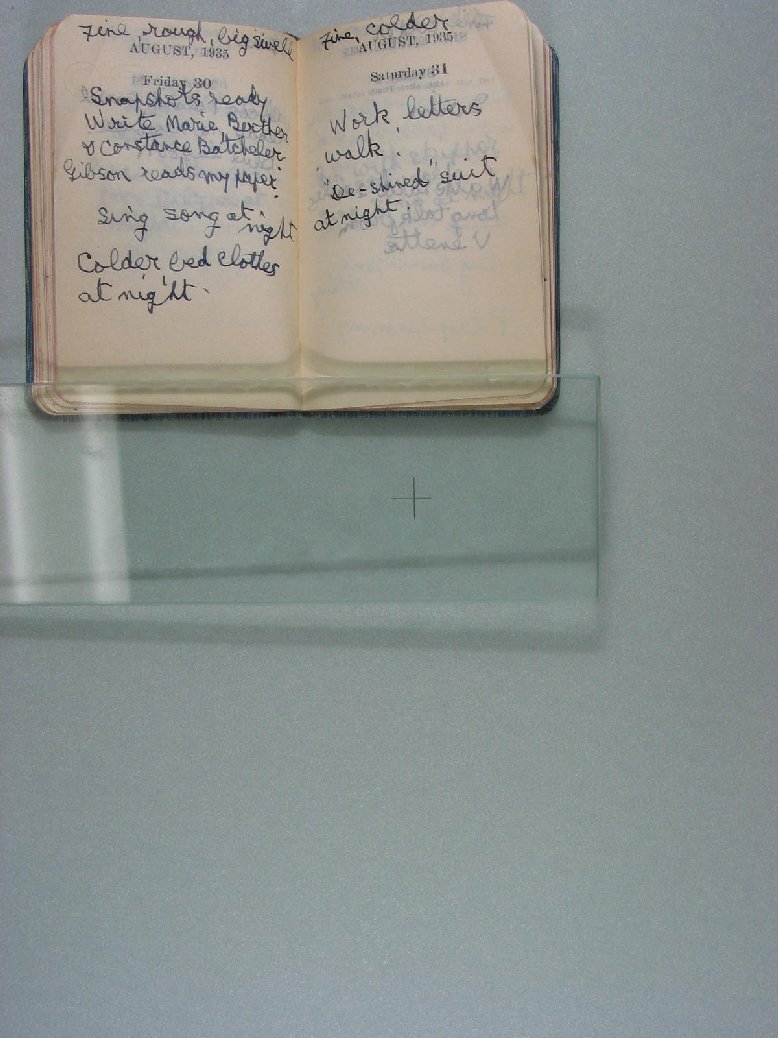 Fine, rough, big swell
AUGUST, 1935
Friday 30
Snapshots ready
Write Marie, Berther
& Constance Batcheler
Gibson reads my paper
Sing song at night
Colder bed clothes
at night.
Fine, colder
AUGUST, 1935
Saturday 31
Work, letters
walk.
"De-shined" suit
at night.